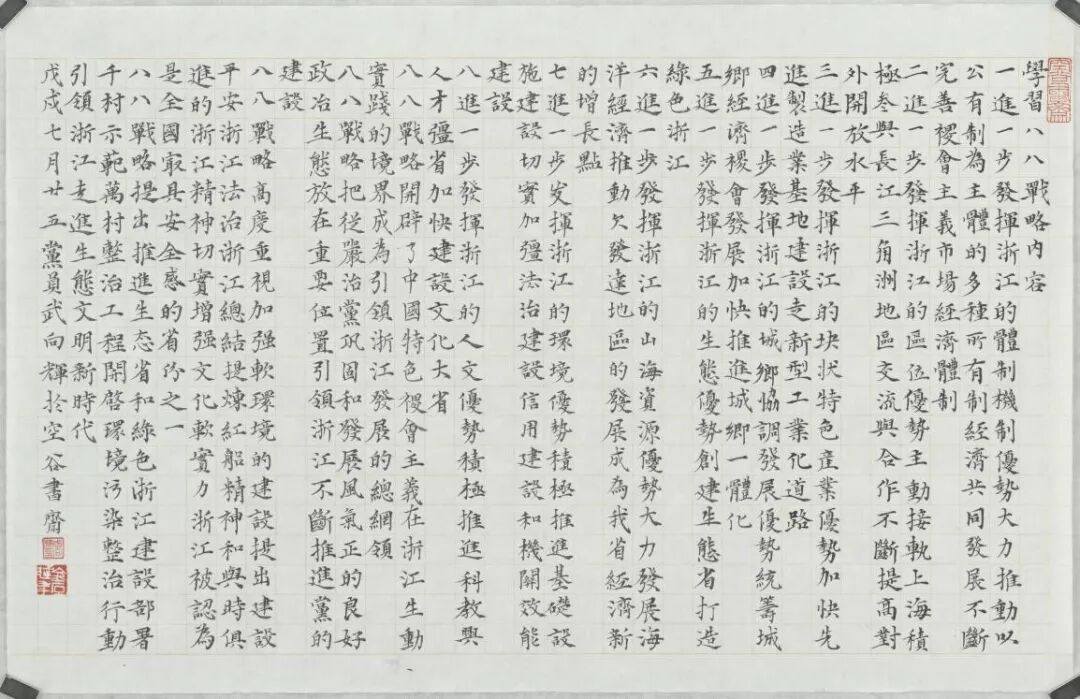 學習八八戰略內容
一進一步發揮浙江的體制機制優勢大力推動以
公有制為主體的多種所有制經濟共同發展不斷
完善稷會主義市場經濟體制
二進一步發揮浙江的區位優勢主動接軌上海積
極叁與長江三角洲地區交流與合作不斷提高對
外開放水平
三進一步發揮浙江的块狀特色產業優勢加快先
進製造業基地建設走新型工業化道路
四進一步發揮浙江的城鄉協調發展優勢統籌城
鄉經濟稷會發展加快推進城鄉一體化
五進一步發揮浙江的生態優勢創建生態省打造
綠色浙江
六進一步發揮浙江的山海資源優勢大力發展海
洋經濟推動欠發達地區的發展成為我省經濟新
的增長點
七進一步发揮浙江的環境優勢積極推進基礎設
施建設切實加彊法治建設信用建設和機關效能
建設
八進一步發揮浙江的人文優勢積極推進科教興
人才彊省加快建設文化大省
八八戰略開辟了中國特色稷會主義在浙江生動
實踐的境界成為引領浙江發展的總網領
八八戰略把從嚴治黨巩固和發展風氣正的良好
政冶生態放在重要位置引領浙江不斷推進黨的
建設
八八戰略高度重視加强軟環境的建設提出建設
平安浙江法治浙江總結提煉紅船精神和與時俱
進的浙江精神切實增强文化軟實力浙江被認為
是全國最具安全感的省份之一
八八戰略提出推進生态省和綠色浙江建設部署
千村示範萬村整治工程開啓環境污染整治行動
引領浙江走進生態文明新時代
戊戌七月廿五黨員武向輝於空谷書齋